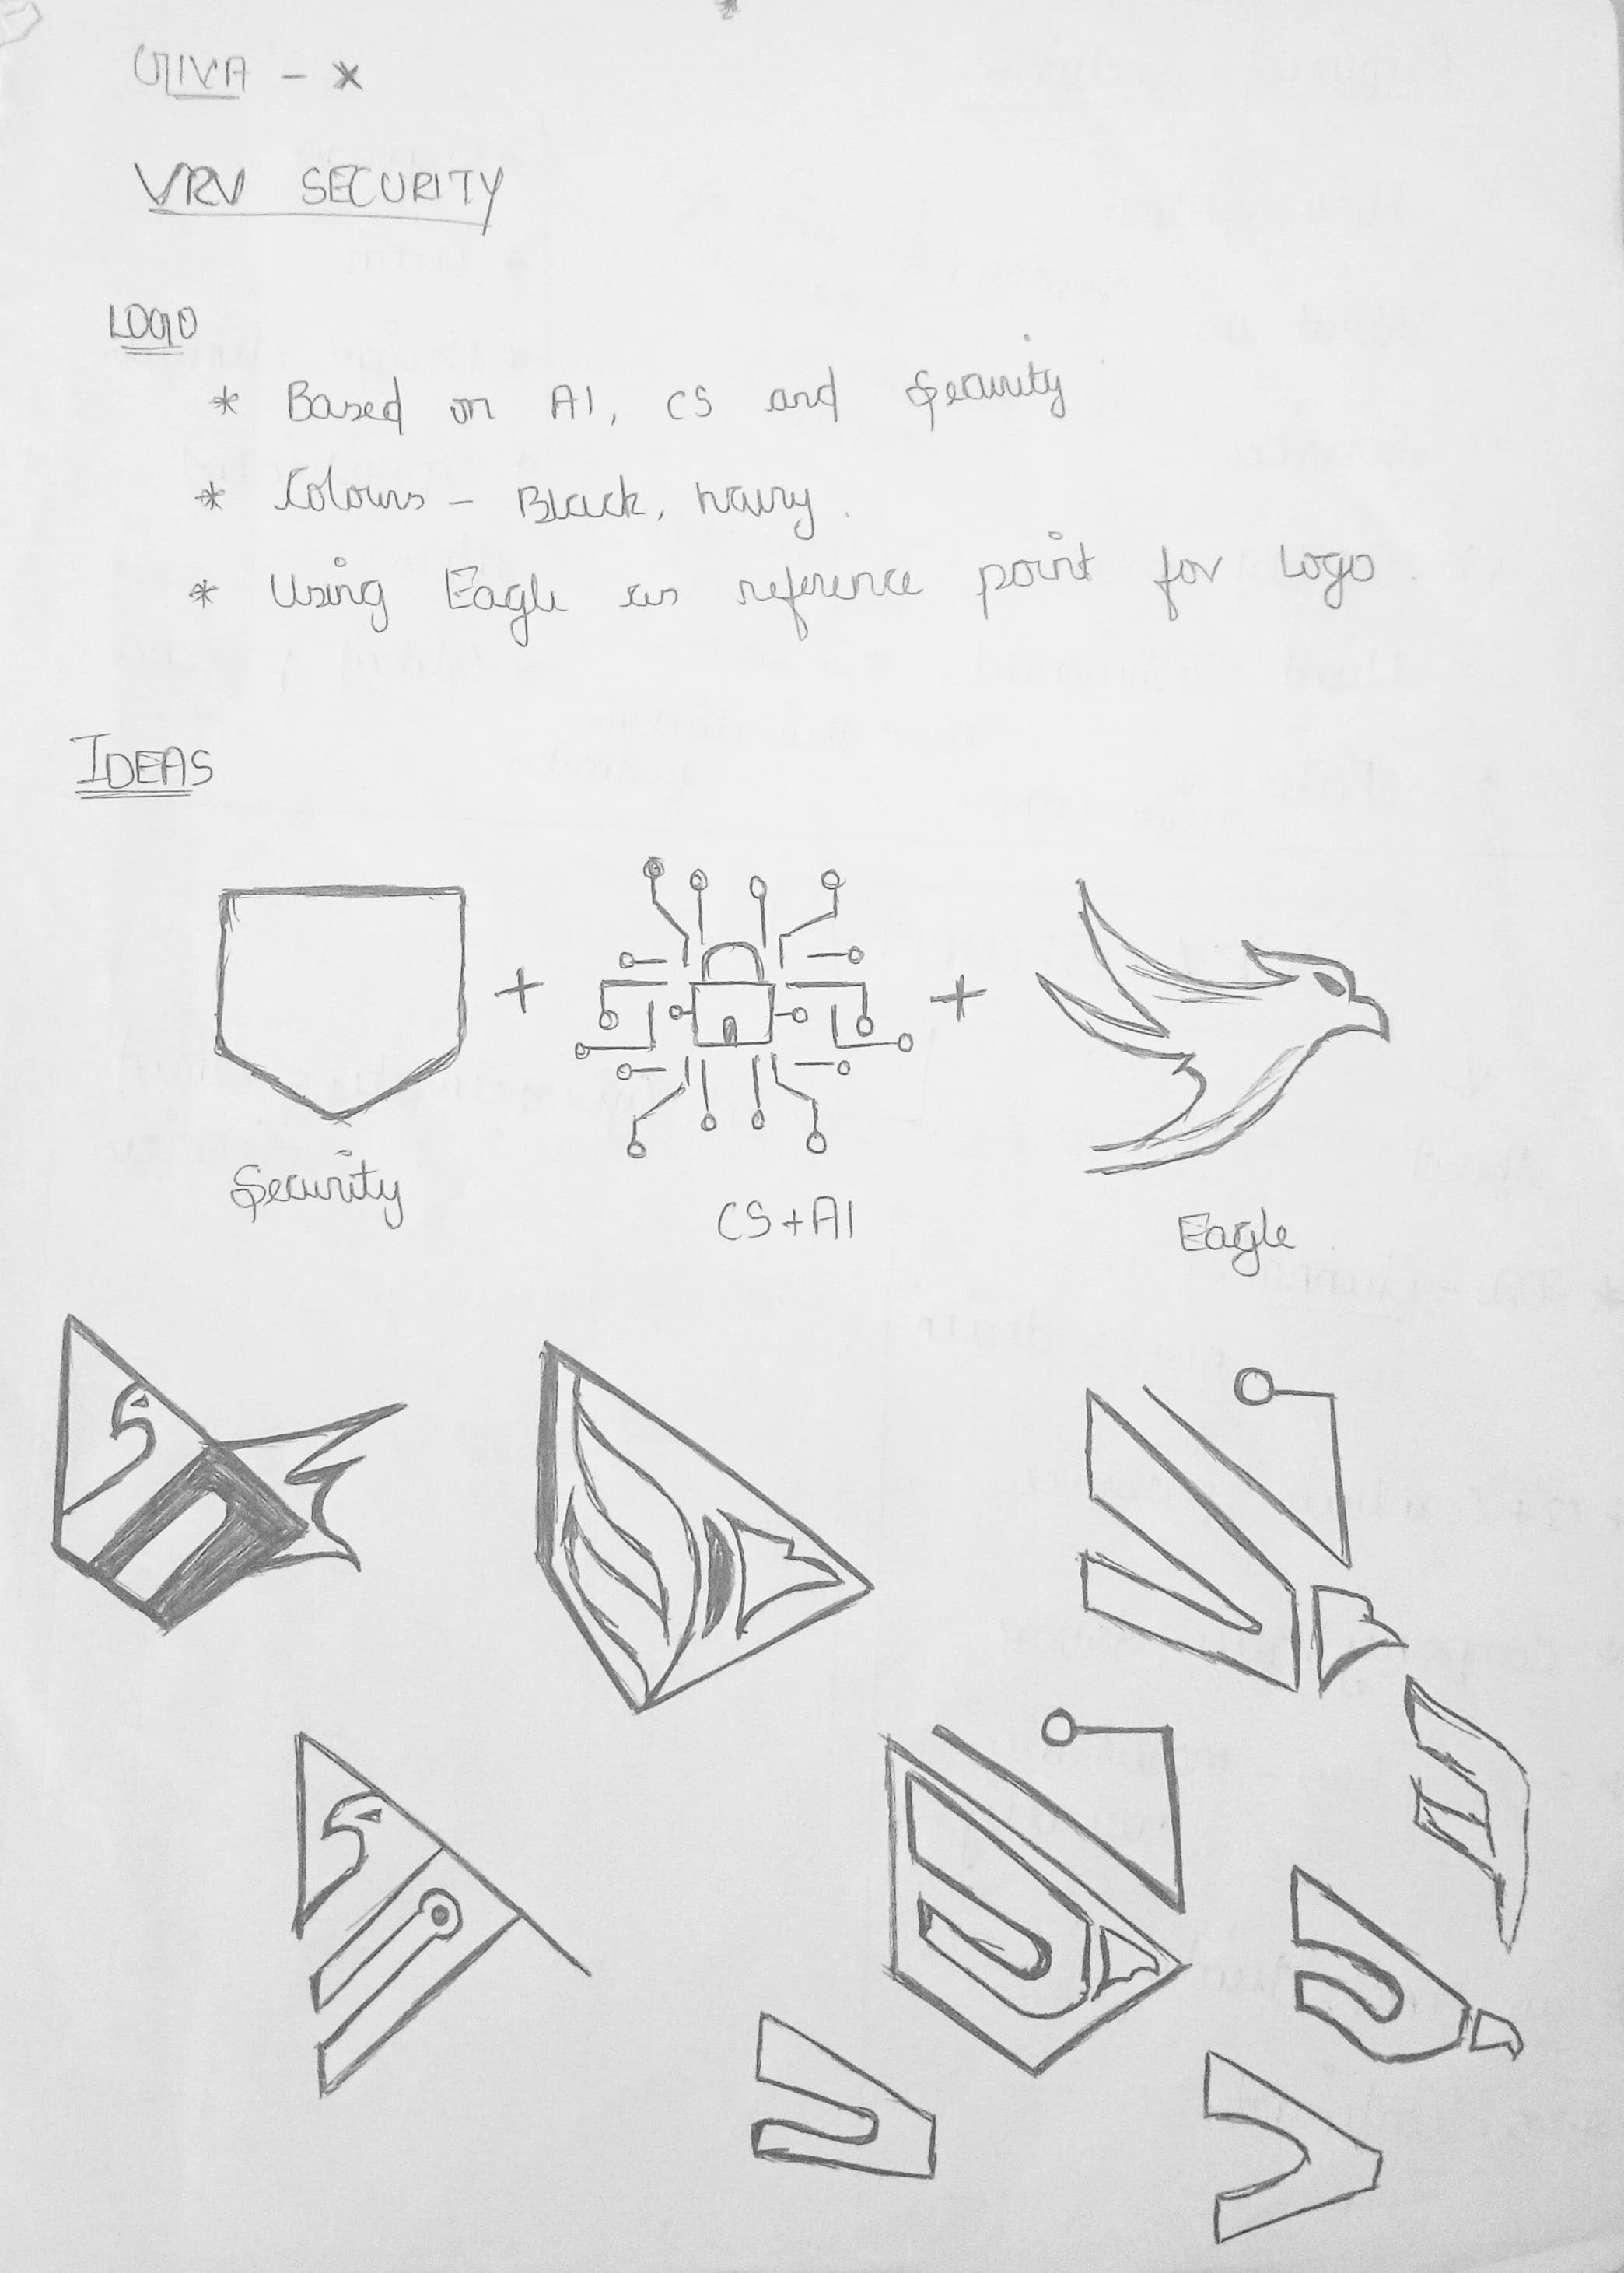 VRV SECURITY
LOGO
* Based on AI, CS and Security
* Colours - Black, Navy.
* Using Eagle as reference point for Logo
IDEAS
+ +
Security
CS+AI
Eagle